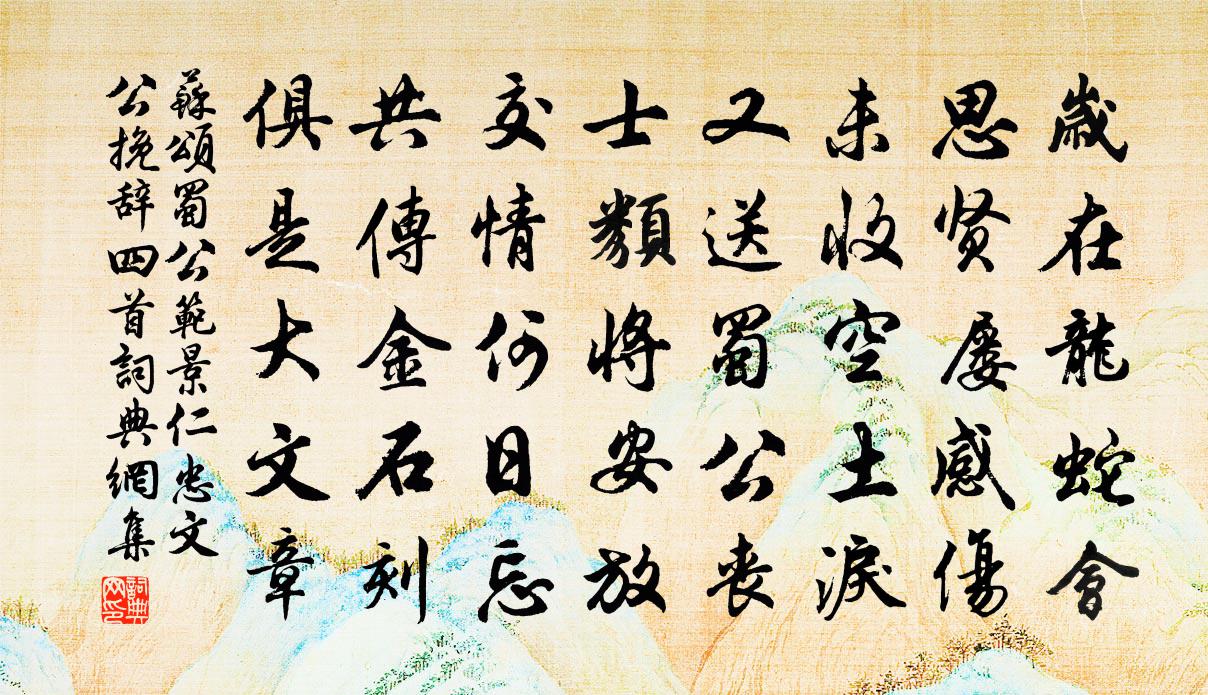 歲在龍蛇會
思贤屡感傷
未收空土淚
又送蜀公丧
士類將安放
交情何日忘
共傳金石刻
俱是大文章
蘇頌蜀公範景仁忠文
公挽辞四首詞典網集
詞典网印